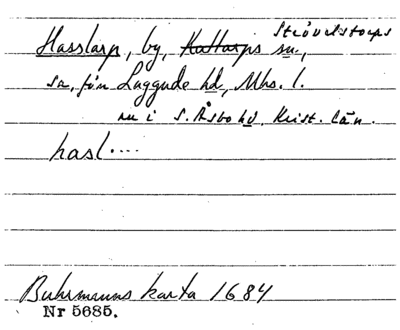 Stövelstorps
Hasslarp, by, Kattarps sn.,
sa. frn Luggude hd, Mhs. l.
nu i S. Åsbo hd, Krist. län.
hasl....
Buhrmanns karta 1684
Nr 5685.